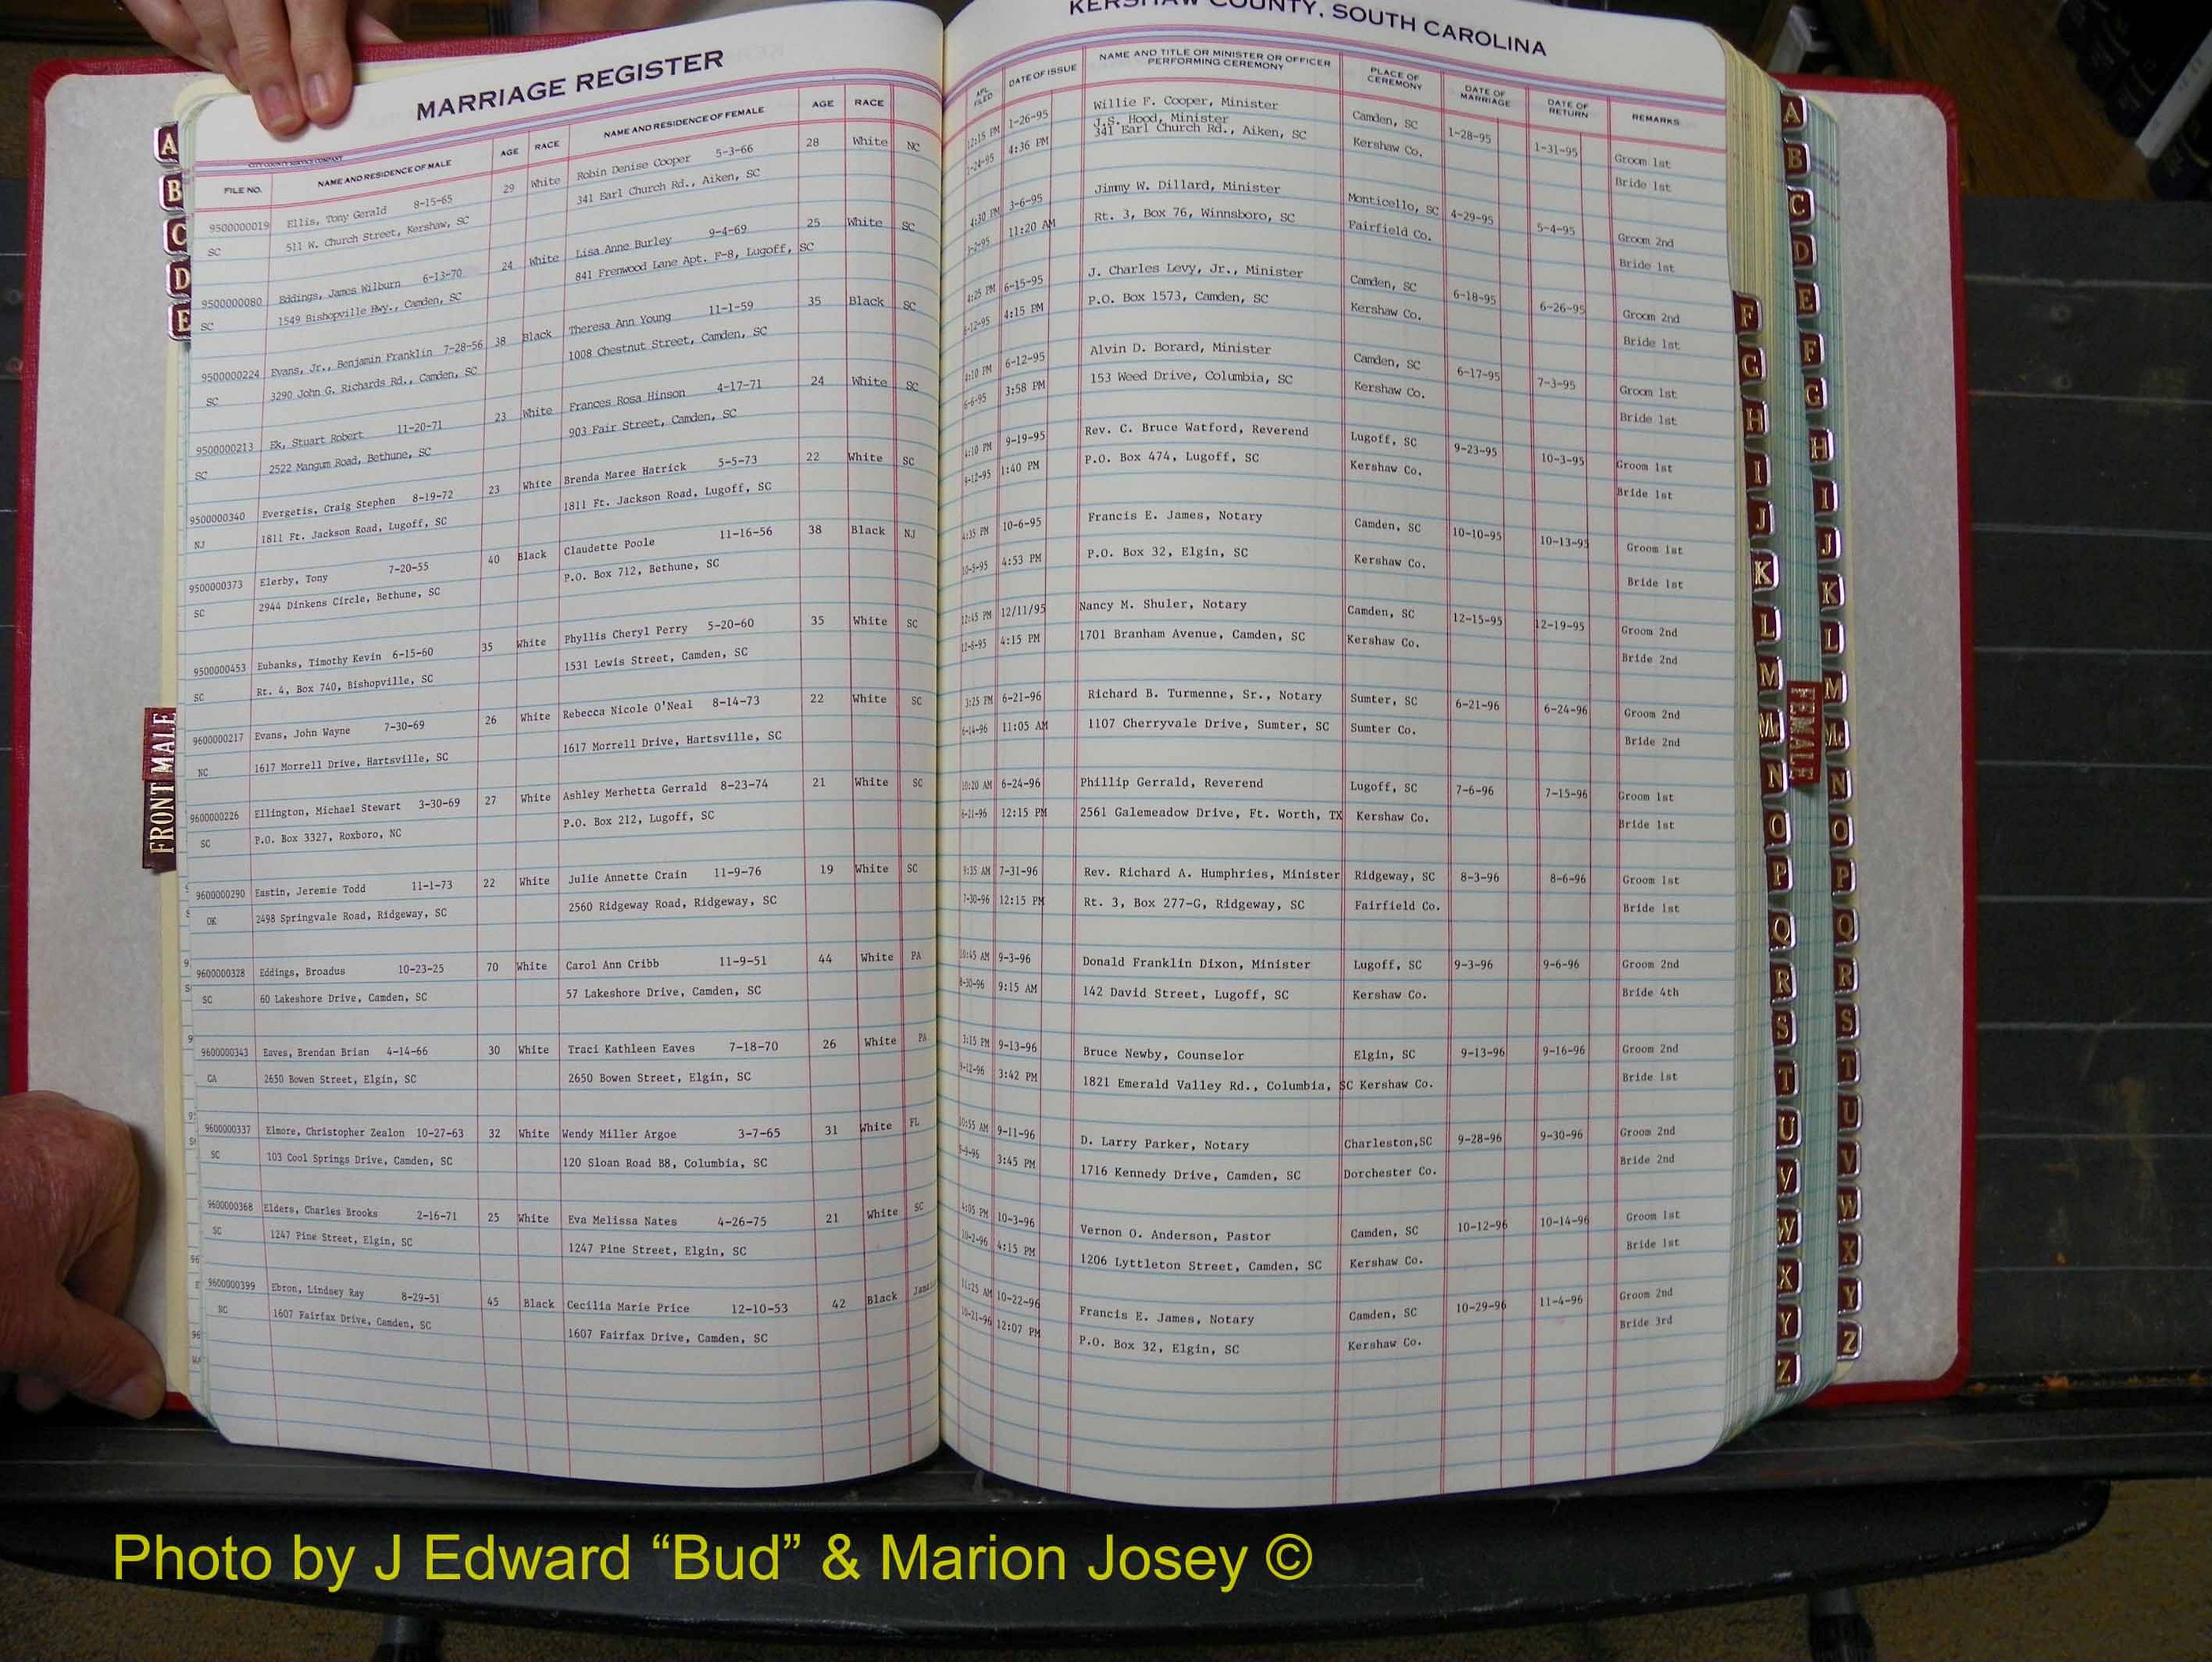 MARRIAGE REGISTER
CITY COUNTY SERVICE COMPANY
FILE NO. NAME AND RESIDENCE OF MALE AGE RACE NAME AND RESIDENCE OF FEMALE AGE RACE
9500000019 Ellis, Tony Gerald 8-15-65 29 White Robin Denise Cooper 5-3-66 28 White NC
SC 511 W. Church Street, Kershaw, SC 341 Earl Church Rd., Aiken, SC
9500000080 Eddings, James Wilburn 6-13-70 24 White Lisa Anne Burley 9-4-69 25 White SC
SC 1549 Bishopville Hwy., Camden, SC 841 Frenwood Lane Apt. F-8, Lugoff, SC
9500000224 Evans, Jr., Benjamin Franklin 7-28-56 38 Black Theresa Ann Young 11-1-59 35 Black SC
SC 3290 John G. Richards Rd., Camden, SC 1008 Chestnut Street, Camden, SC
9500000213 Ek, Stuart Robert 11-20-71 23 White Frances Rosa Hinson 4-17-71 24 White SC
SC 2522 Mangum Road, Bethune, SC 903 Fair Street, Camden, SC
9500000340 Evergetis, Craig Stephen 8-19-72 23 White Brenda Maree Hatrick 5-5-73 22 White SC
NJ 1811 Ft. Jackson Road, Lugoff, SC 1811 Ft. Jackson Road, Lugoff, SC
9500000373 Elerby, Tony 7-20-55 40 Black Claudette Poole 11-16-56 38 Black NJ
SC 2944 Dinkens Circle, Bethune, SC P.O. Box 712, Bethune, SC
9500000453 Eubanks, Timothy Kevin 6-15-60 35 White Phyllis Cheryl Perry 5-20-60 35 White SC
SC Rt. 4, Box 740, Bishopville, SC 1531 Lewis Street, Camden, SC
9600000217 Evans, John Wayne 7-30-69 26 White Rebecca Nicole O'Neal 8-14-73 22 White SC
NC 1617 Morrell Drive, Hartsville, SC 1617 Morrell Drive, Hartsville, SC
9600000226 Ellington, Michael Stewart 3-30-69 27 White Ashley Merhetta Gerrald 8-23-74 21 White SC
SC P.O. Box 3327, Roxboro, NC P.O. Box 212, Lugoff, SC
9600000290 Eastin, Jeremie Todd 11-1-73 22 White Julie Annette Crain 11-9-76 19 White SC
OK 2498 Springvale Road, Ridgeway, SC 2560 Ridgeway Road, Ridgeway, SC
9600000328 Eddings, Broadus 10-23-25 70 White Carol Ann Cribb 11-9-51 44 White PA
SC 60 Lakeshore Drive, Camden, SC 57 Lakeshore Drive, Camden, SC
9600000343 Eaves, Brendan Brian 4-14-66 30 White Traci Kathleen Eaves 7-18-70 26 White PA
CA 2650 Bowen Street, Elgin, SC 2650 Bowen Street, Elgin, SC
9600000337 Elmore, Christopher Zealon 10-27-63 32 White Wendy Miller Argoe 3-7-65 31 White FL
SC 103 Cool Springs Drive, Camden, SC 120 Sloan Road B8, Columbia, SC
9600000368 Elders, Charles Brooks 2-16-71 25 White Eva Melissa Nates 4-26-75 21 White SC
SC 1247 Pine Street, Elgin, SC 1247 Pine Street, Elgin, SC
9600000399 Ebron, Lindsey Ray 8-29-51 45 Black Cecilia Marie Price 12-10-53 42 Black
NC 1607 Fairfax Drive, Camden, SC 1607 Fairfax Drive, Camden, SC
KERSHAW COUNTY, SOUTH CAROLINA
APL. FILED DATE OF ISSUE NAME AND TITLE OR MINISTER OR OFFICER PERFORMING CEREMONY PLACE OF CEREMONY DATE OF MARRIAGE DATE OF RETURN REMARKS
12:15 PM 1-26-95 Willie F. Cooper, Minister Camden, SC 1-28-95 1-31-95 Groom 1st
J.S. Hood, Minister
1-24-95 4:36 PM 341 Earl Church Rd., Aiken, SC Kershaw Co. Bride 1st
4:30 PM 3-6-95 Jimmy W. Dillard, Minister Monticello, SC 4-29-95 5-4-95 Groom 2nd
11:20 AM Rt. 3, Box 76, Winnsboro, SC Fairfield Co. Bride 1st
4:25 PM 6-15-95 J. Charles Levy, Jr., Minister Camden, SC 6-18-95 6-26-95 Groom 2nd
6-12-95 4:15 PM P.O. Box 1573, Camden, SC Kershaw Co. Bride 1st
4:10 PM 6-12-95 Alvin D. Borard, Minister Camden, SC 6-17-95 7-3-95 Groom 1st
6-6-95 3:58 PM 153 Weed Drive, Columbia, SC Kershaw Co. Bride 1st
4:10 PM 9-19-95 Rev. C. Bruce Watford, Reverend Lugoff, SC 9-23-95 10-3-95 Groom 1st
9-12-95 1:40 PM P.O. Box 474, Lugoff, SC Kershaw Co. Bride 1st
4:35 PM 10-6-95 Francis E. James, Notary Camden, SC 10-10-95 10-13-95 Groom 1st
10-5-95 4:53 PM P.O. Box 32, Elgin, SC Kershaw Co. Bride 1st
12:45 PM 12/11/95 Nancy M. Shuler, Notary Camden, SC 12-15-95 12-19-95 Groom 2nd
12-8-95 4:15 PM 1701 Branham Avenue, Camden, SC Kershaw Co. Bride 2nd
3:25 PM 6-21-96 Richard B. Turmenne, Sr., Notary Sumter, SC 6-21-96 6-24-96 Groom 2nd
6-14-96 11:05 AM 1107 Cherryvale Drive, Sumter, SC Sumter Co. Bride 2nd
10:20 AM 6-24-96 Phillip Gerrald, Reverend Lugoff, SC 7-6-96 7-15-96 Groom 1st
6-21-96 12:15 PM 2561 Galemeadow Drive, Ft. Worth, TX Kershaw Co. Bride 1st
9:35 AM 7-31-96 Rev. Richard A. Humphries, Minister Ridgeway, SC 8-3-96 8-6-96 Groom 1st
7-30-96 12:15 PM Rt. 3, Box 277-G, Ridgeway, SC Fairfield Co. Bride 1st
10:45 AM 9-3-96 Donald Franklin Dixon, Minister Lugoff, SC 9-3-96 9-6-96 Groom 2nd
8-30-96 9:15 AM 142 David Street, Lugoff, SC Kershaw Co. Bride 4th
3:15 PM 9-13-96 Bruce Newby, Counselor Elgin, SC 9-13-96 9-16-96 Groom 2nd
9-12-96 3:42 PM 1821 Emerald Valley Rd., Columbia, SC Kershaw Co. Bride 1st
10:55 AM 9-11-96 D. Larry Parker, Notary Charleston,SC 9-28-96 9-30-96 Groom 2nd
9-9-96 3:45 PM 1716 Kennedy Drive, Camden, SC Dorchester Co. Bride 2nd
4:05 PM 10-3-96 Vernon O. Anderson, Pastor Camden, SC 10-12-96 10-14-96 Groom 1st
10-2-96 4:15 PM 1206 Lyttleton Street, Camden, SC Kershaw Co. Bride 1st
11:25 AM 10-22-96 Francis E. James, Notary Camden, SC 10-29-96 11-4-96 Groom 2nd
10-21-96 12:07 PM P.O. Box 32, Elgin, SC Kershaw Co. Bride 3rd
A
B
C
D
E
FRONT MALE
F
G
H
I
J
K
L
M
Mc
N
O
P
Q
R
S
T
U
V
W
X
Y
Z
FEMALE
A
B
C
D
E
F
G
H
I
J
K
L
M
Mc
N
O
P
Q
R
S
T
U
V
W
X
Y
Z
Photo by J Edward “Bud” & Marion Josey ©